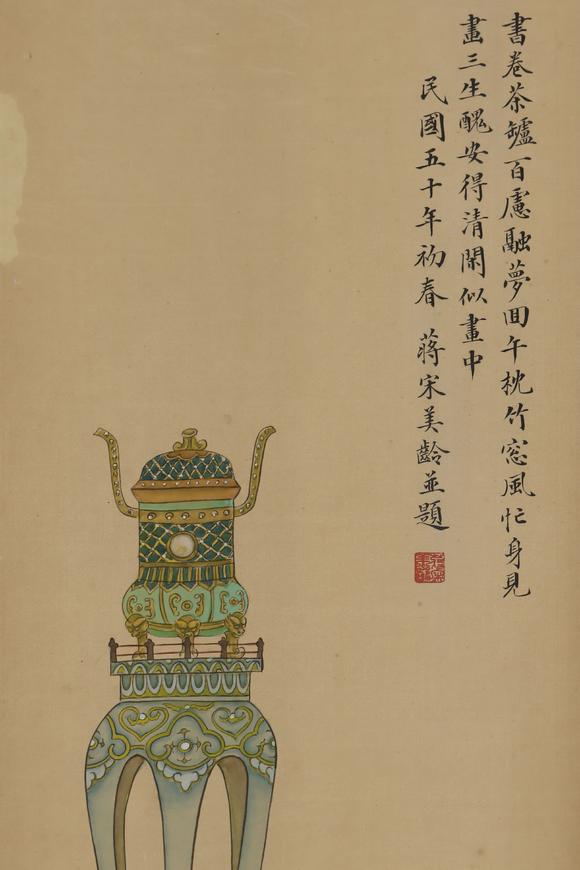 書卷茶罏百慮融夢回午枕竹窓風忙身見
畫三生醜安得清閑似畫中
民國五十年初春 蔣宋美齡並題